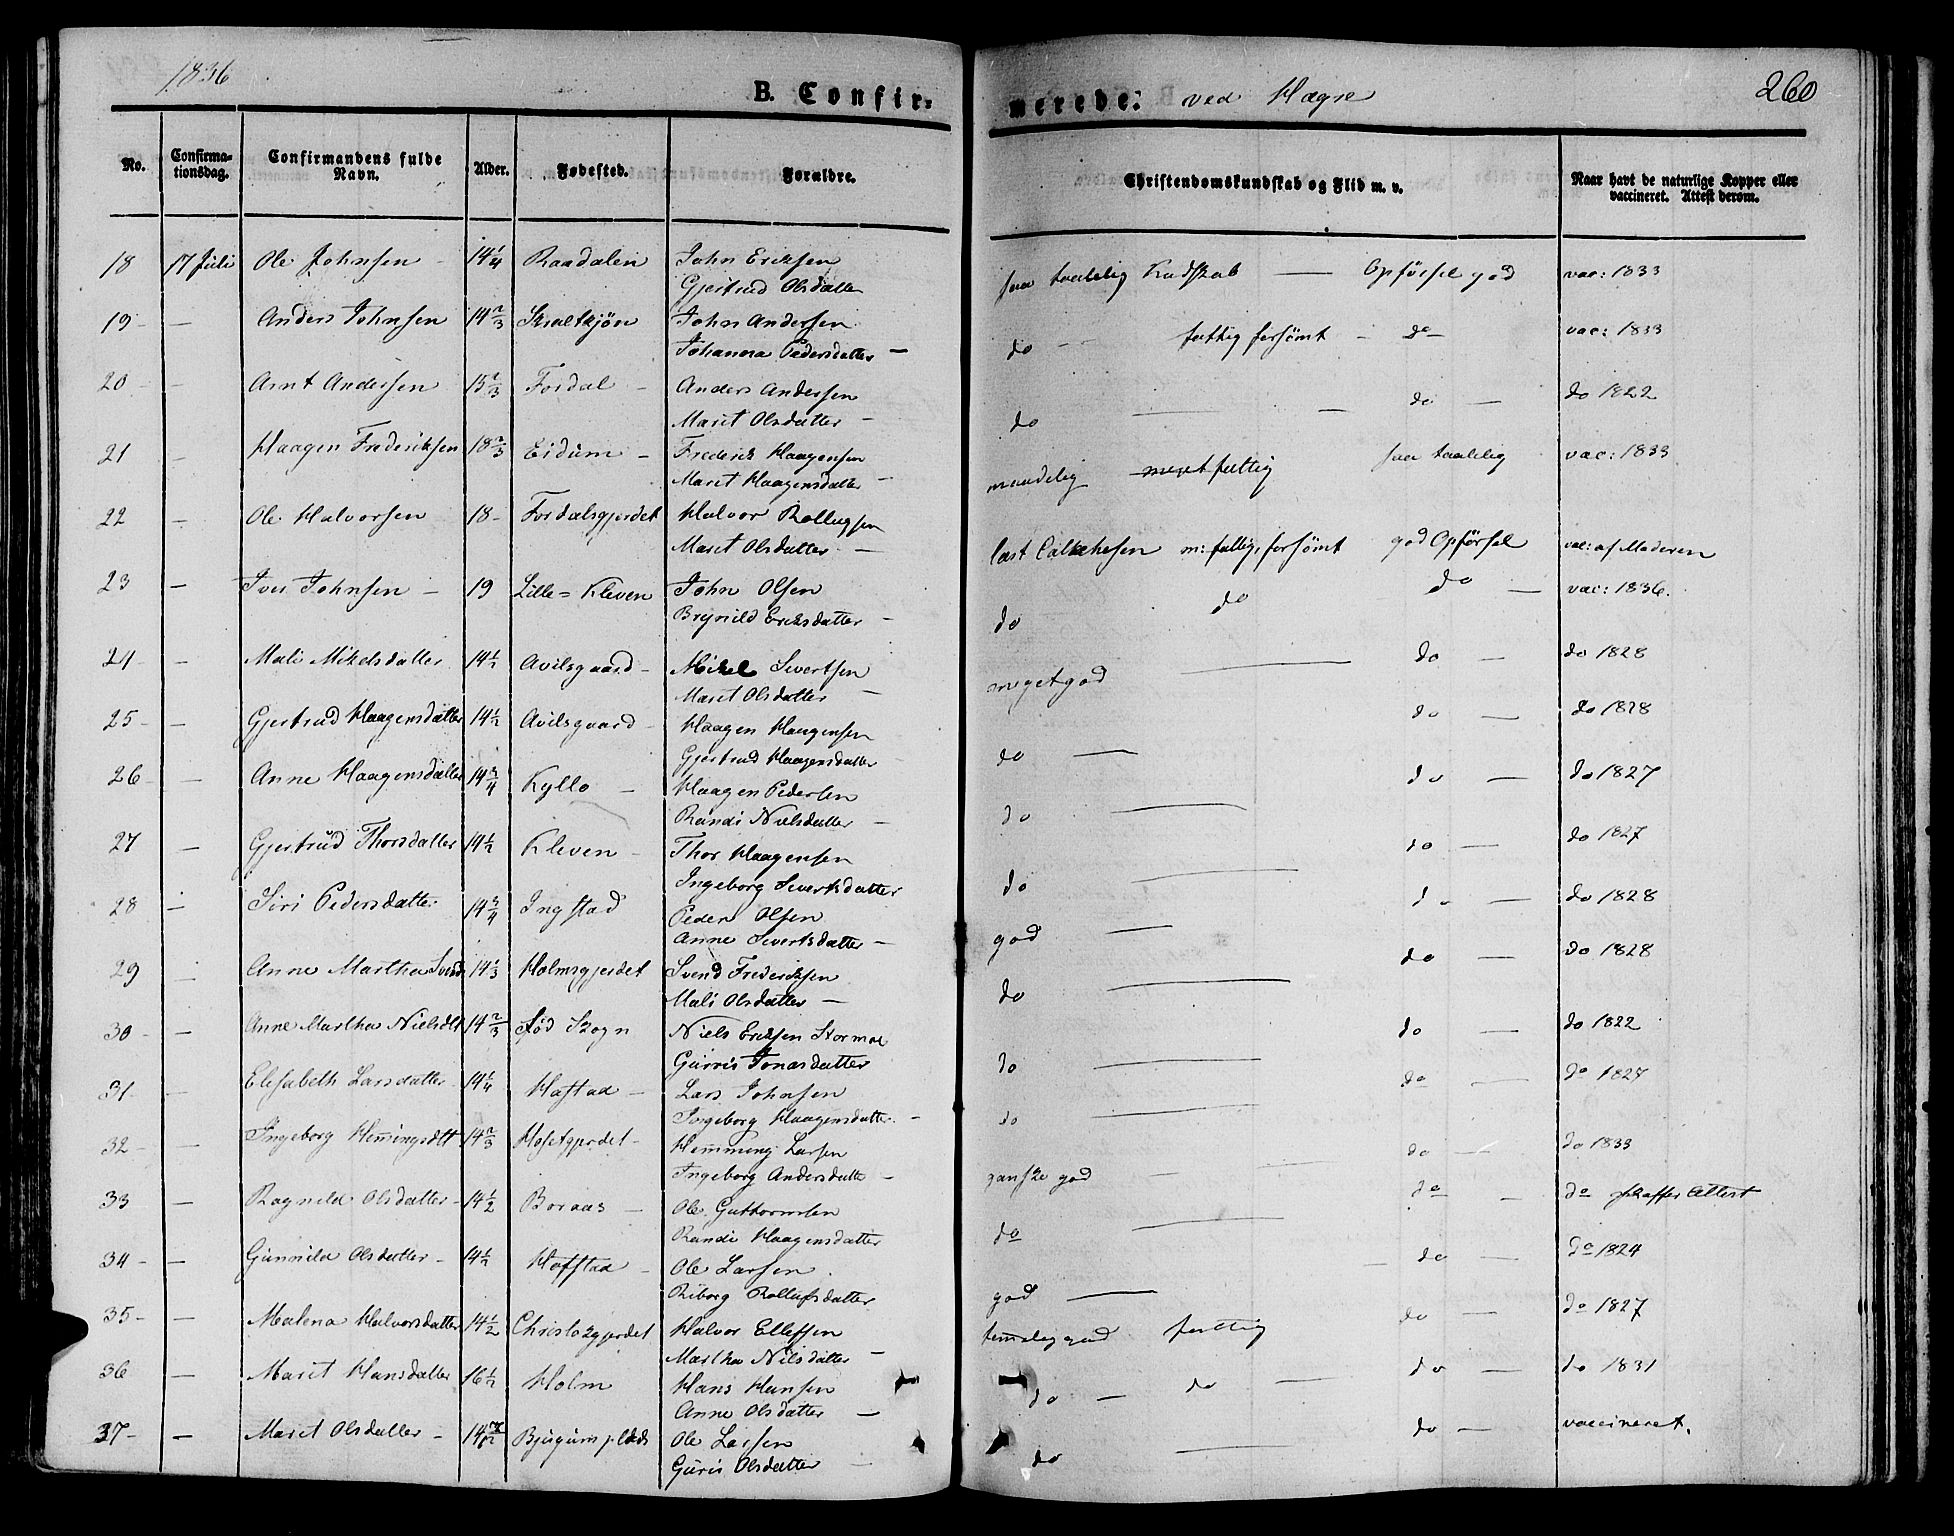 1836
B. Confir-
merede. ved Hegre
260
No.
Confirma-
tionsdag.
Confirmandens fulde
Navn.
Alder.
Fødested.
Forældre.
Christendomskundskab og Flid m. v.
Naar havt de naturlige Kopper eller
vaccineret. Attest derom.
18 17 Juli Ole Johnsen - 14 1/4 Raadalen John Eriksen
Gjertrud Olsdatter
saa taalelig Kudskab — Opførsel god vac: 1833
19 - — Anders Johnsen 14 2/3 John Andersen
Johanna Pedersdatter —
do - - fattig forsømt - do - vac: 1833
20 - - Arnt Andersen 15 2/3 Fordal - Anders Andersen
Marit Olsdatter -
do — — do — do 1822
21 - Haagen Frederiksen 18 2/3 Eidum - Frederik Haagensen
Marit Haagensdatter -
maadelig meget fattig saa taalelig vac: 1833
22 - Ole Halvorsen 18 - Fordalsgjerdet Halvor Rollugsen
Marit Olsdatter —
læst m: fattig, forsømt god Opførsel vac: af Moderen
23 - Iver Johnsen - 19 Lille= Kleven John Olsen
Brynild Eriksdatter -
do do do — vac: 1836.
24 - - Mali Mikelsdatter 14 1/2 Avilsgaard - Mikel Sivertsen
Marit Olsdatter -
meget god — do — do 1828
25 - - Gjertrud Haagensdatter 14 1/2 Avilsgaard - Haagen Haagensen
Gjertrud Haagensdatter -
do — do — do 1828
26 - - Anne Haagensdatter 14 3/4 Kyllo - Haagen Pedersen
Randi Nielsdatter -
do — do — do 1827
27 - Gjertrud Thorsdatter 14 1/2 Kleven - Thor Haagensen
Ingeborg Sivertsdatter
do — do — do 1827
28 - Siri Pedersdatter 14 3/4 Ingstad Peder Olsen
Anne Sivertsdatter -
god — do — do 1828
29 - Anne Martha Svend 14 1/3 Holmsgjerdet Svend Frederiksen
Mali Olsdatter —
do — do — do 1828
30 - - Anne Martha Nielsdt 14 2/3 Sød Skogn Niels Eriksen Stormoe
Gurris Jonasdatter
do — do — do 1822
31 - - Elisabeth Larsdatter 14 1/4 Hofstad - Lars Johnsen
Ingeborg Haagensdatter -
do — do — do 1827
32 - - Ingeborg Hemingsdtt 14 2/3 Hosetgjerdet - Hemming Larsen
Ingeborg Andersdatter -
ganske god — do — do 1833
33 - Ragnild Olsdatter - 14 1/2 Boraas - Ole Guttormsen
Randi Haagensdatter
do — do — do skaffer Attest
34 - - Gunnild Olsdatter - 14 1/2 Hofstad - Ole Larsen
Riborg Rollufsdatter
god — do — do 1824
35 - - Malena Halvorsdatter 14 1/2 Halvor Ellefsen
Martha Nilsdatter -
temelig god fattig do — do 1827
36 - Marit Hansdatter 16 1/2 Holm Hans Hansen
Anne Olsdatter —
do — do — do — do 1831
37 - - Marit Olsdatter - 14 Ole Larsen
Guris Olsdatter —
do — do — vaccineret.